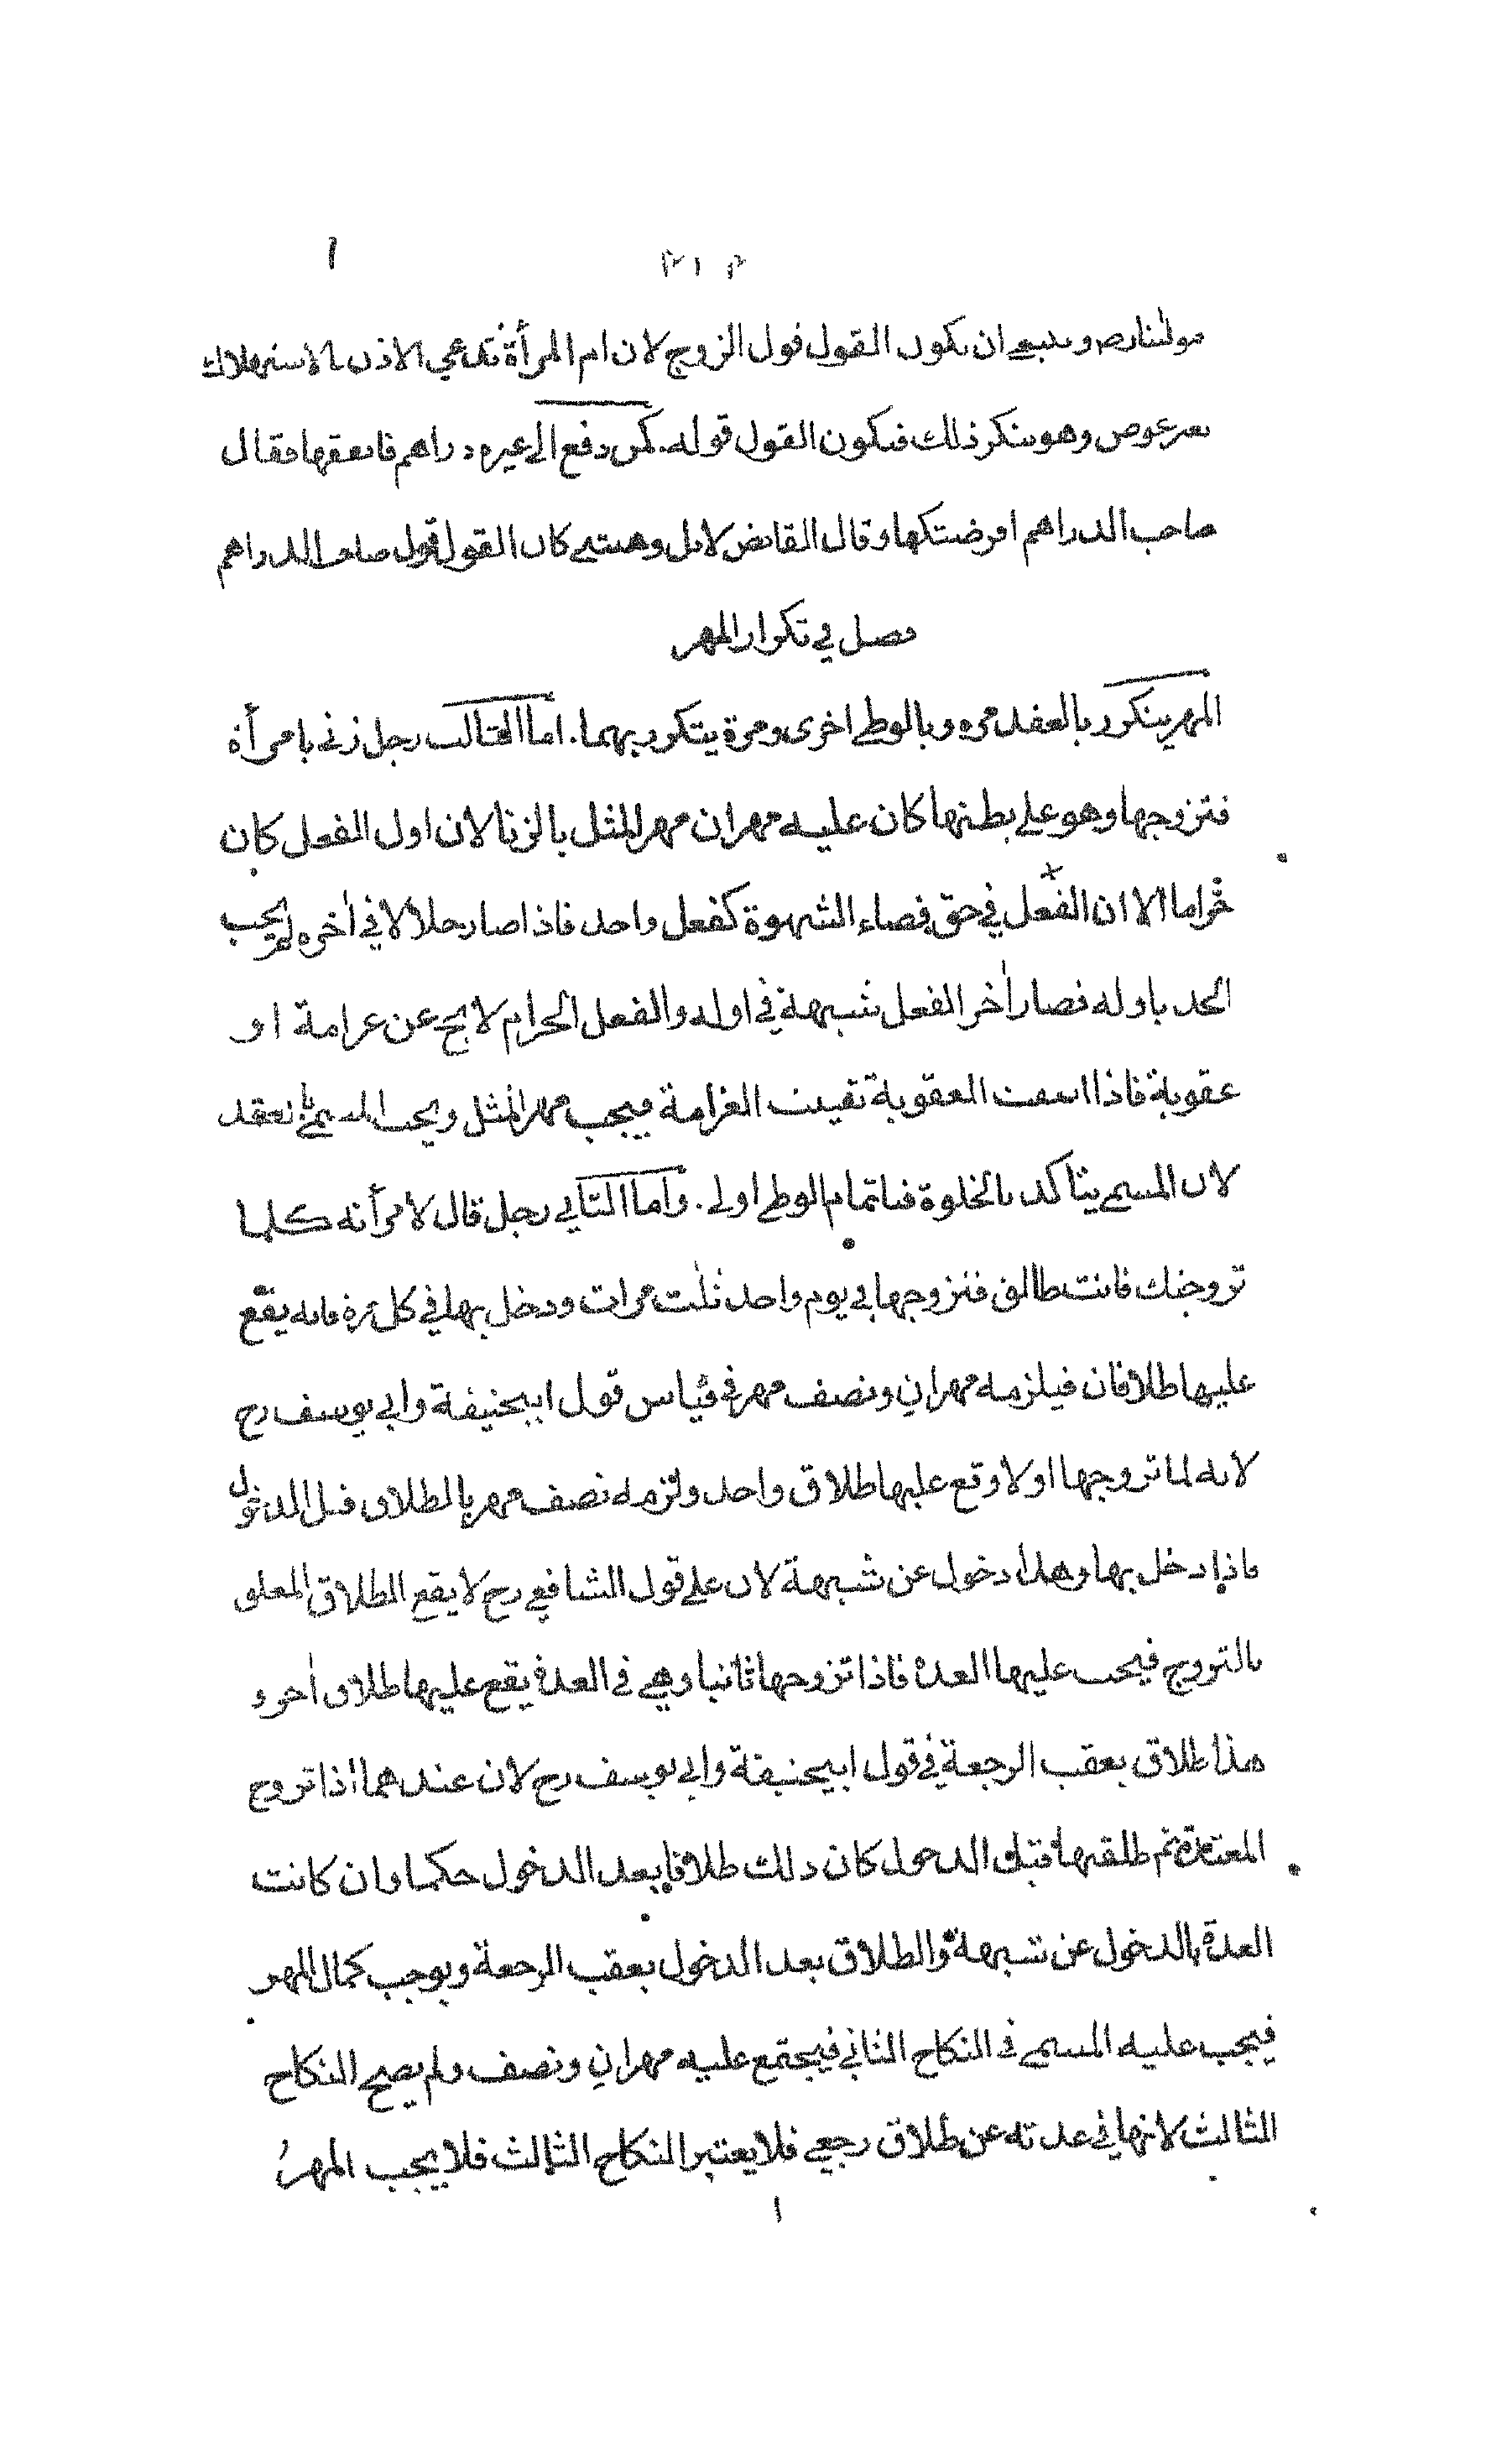 مولٰنا رض وينبغي ان يكون القول قول الزوج لان ام المرأة تدعي الاذن بالاستهلاك
بغير عوض وهو ينكر ذلك فيكون القول قوله . كمن دفع الى غيره دراهم فانفقها فقال
صاحب الدراهم اقرضتكها وقال القابض لا بل وهبتني كان القول قول صاحب الدراهم
فصل في تكرار المهر
المهر يتكرر بالعقد مرة وبالوطي اخرى ومرة يتكرر بهما . اما رجل زنى بامرأة
فتزوجها وهو على بطنها كان عليه مهران مهر المثل بالزنا لان اول الفعل كان
حراما الا ان الفعل في حق قضاء الشهوة كفعل واحد فاذا صار حلالا في اٰخره لم يجب
الحد باوله فصار اٰخر الفعل شبهة في اوله والفعل الحرام لا يخ عن غرامة او
عقوبة فاذا انتفت العقوبة تعينت الغرامة فيجب مهر المثل ويجب المسمى بالعقد
لان المسمى يتأكد بالخلوة فباتمام الوطي اولى . واما الثاني رجل قال لامرأته كلما
تزوجتك فانت طالق فتزوجها في يوم واحد ثلٰث مرات ودخل بها في كل مرة فانه يقع
عليها طلاقان فيلزمه مهران ونصف مهر في قياس قول ابيحنيفة وابي يوسف رح
لانه لما تزوجها اولا وقع عليها طلاق واحد ولزمه نصف مهر بالطلاق قبل الدخول
فاذا دخل بها وهذا دخول عن شبهة لان على قول الشافعي رح لا يقع الطلاق المعلق
بالتزويج فيجب عليها العدة فاذا تزوجها ثانيا وهي في العدة يقع عليها طلاق اٰخر و
هذا طلاق يعقب الرجعة في قول ابيحنيفة وابي يوسف رح لان عندهما اذا تزوج
المعتدة ثم طلقها قبل الدخول كان ذلك طلاقا بعد الدخول حكما وان كانت
العدة بالدخول عن شبهة والطلاق بعد الدخول يعقب الرجعة ويوجب كمال المهر
فيجب عليه المسمى في النكاح الثاني فيجتمع عليه مهران ونصف ولم يصح النكاح
الثالث لانها في عدته عن طلاق رجعي فلا يعتبر النكاح الثالث فلا يجب المهر